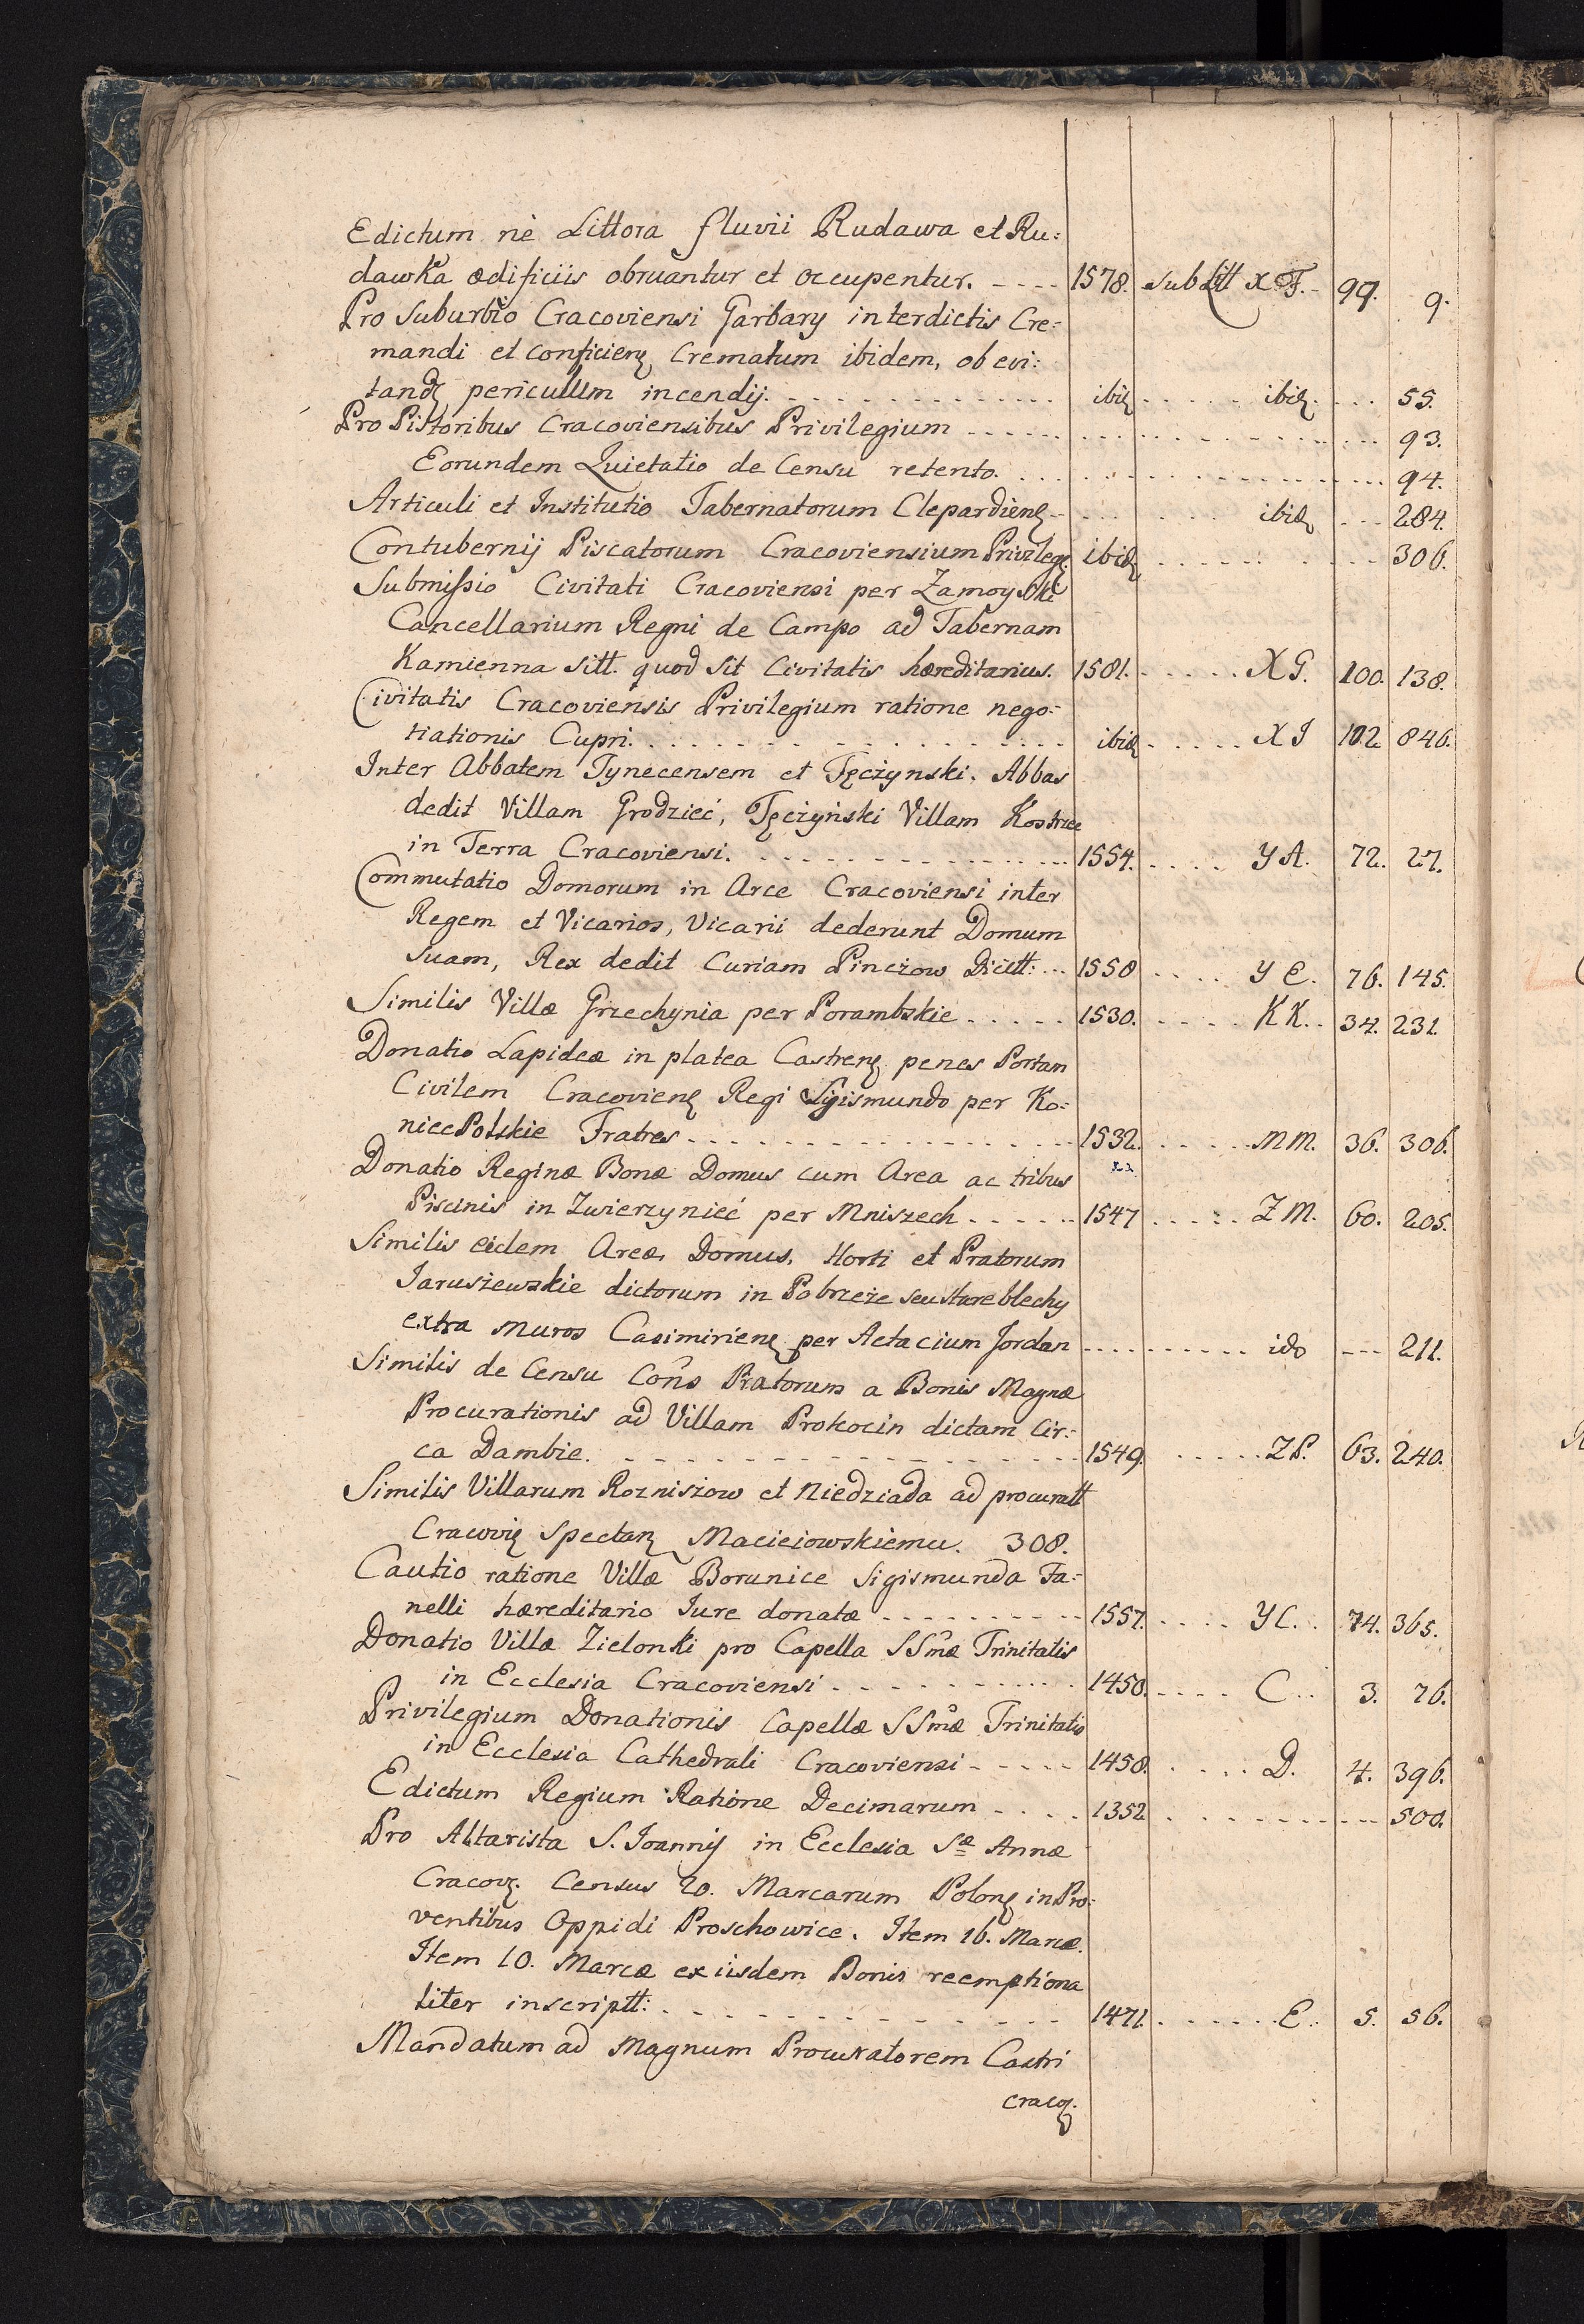 Edictum nè Littora fluvii Rudawa et Ru:
dawka ædificiis obruantur et occupentur. ---- 1578. sub Litt X F. - 99. 9.
Pro Suburbio Cracoviensi Garbary interdictis Cre:
mandi et conficien Crematum ibidem, ob evi:
tand periculum incendij. ibid ibid. 55.
Pro Pistoribus Cracoviensibus Privilegium 93.
Eorundem Quietatio de Censu retento. 94.
Articuli et Institutio Tabernatorum Clepardien ibid 284.
Contubernij Piscatorum Cracoviensium Privileg. ibid 306.
Submissio Civitati Cracoviensi per Zamoyski
Cancellarium Regni de Campo ad Tabernam
Kamienna sitt. quod sit Civitatis hæreditarius. 1581. XG. 100. 138.
Civitatis Cracoviensis Privilegium ratione nego:
tiationis Cupri. ibid XI 102 846.
Inter Abbatem Tynecensem et Tęczynski. Abbas
dedit Villam Grodzieć, Tęczyński Villam Kostrze
in Terra Cracoviensi. 1554. YA. 72. 27.
Commutatio Domorum in Arce Cracoviensi inter
Regem et Vicarios, Vicarii dederunt Domum
suam, Rex dedit Curiam Pinczow Dictt: 1558 YE. 76. 145.
Similis Villæ Grzechynia per Porambskie 1530. KK. 34. 231.
Donatio Lapideæ in platea Castren penes Portam
Civilem Cracovien Regi Sigismundo per Ko:
niecPolskie Fratres 1532. MM. 36. 306.
Donatio Reginæ Bonæ Domus cum Area ac tribus
Piscinis in Zwierzynieć per Mniszech 1547 ZM. 60. 205.
Similis eidem Areæ, Domus, Horti et Pratorum
Jaruszewskie dictorum in Pobrzeże seu stare blechy
extra Muros Casimirien per Actacium Jordan ido --- 211.
Similis de Censu Coñs Pratorum a Bonis Magnæ
Procurationis ad Villam Prokocin dictam Cir:
ca Dambie. 1549. ZP. 63. 240.
Similis Villarum Rozniszow et Niedziada ad procuratt
Cracovię Spectan Macieiowskiemu. 308.
Cautio ratione Villæ Borunice Sigismunda Fa:
nelli hæreditario Jure donatæ 1557. YC. 74. 365.
Donatio Villæ Zielonki pro Capella SSmæ Trinitatis
in Ecclesia Cracoviensi 1450. C 3. 76.
Privilegium Donationis Capellæ SSmæ Trinitatis
in Ecclesia Cathedrali Cracoviensi 1458. D. 4. 396.
Edictum Regium Ratione Decimarum 1352 500.
Pro Altarista S. Joannis in Ecclesia Sæ Annæ
Cracov. Census 20. Marcarum Polon in Pro:
ventibus Oppidi Proschowice. Item 16. Marcæ.
Item 10. Marcæ ex iisdem Bonis reemptiona
liter inscriptt: 1471. E. 5. 56.
Mandatum ad Magnum Procuratorem Castri
Craco.